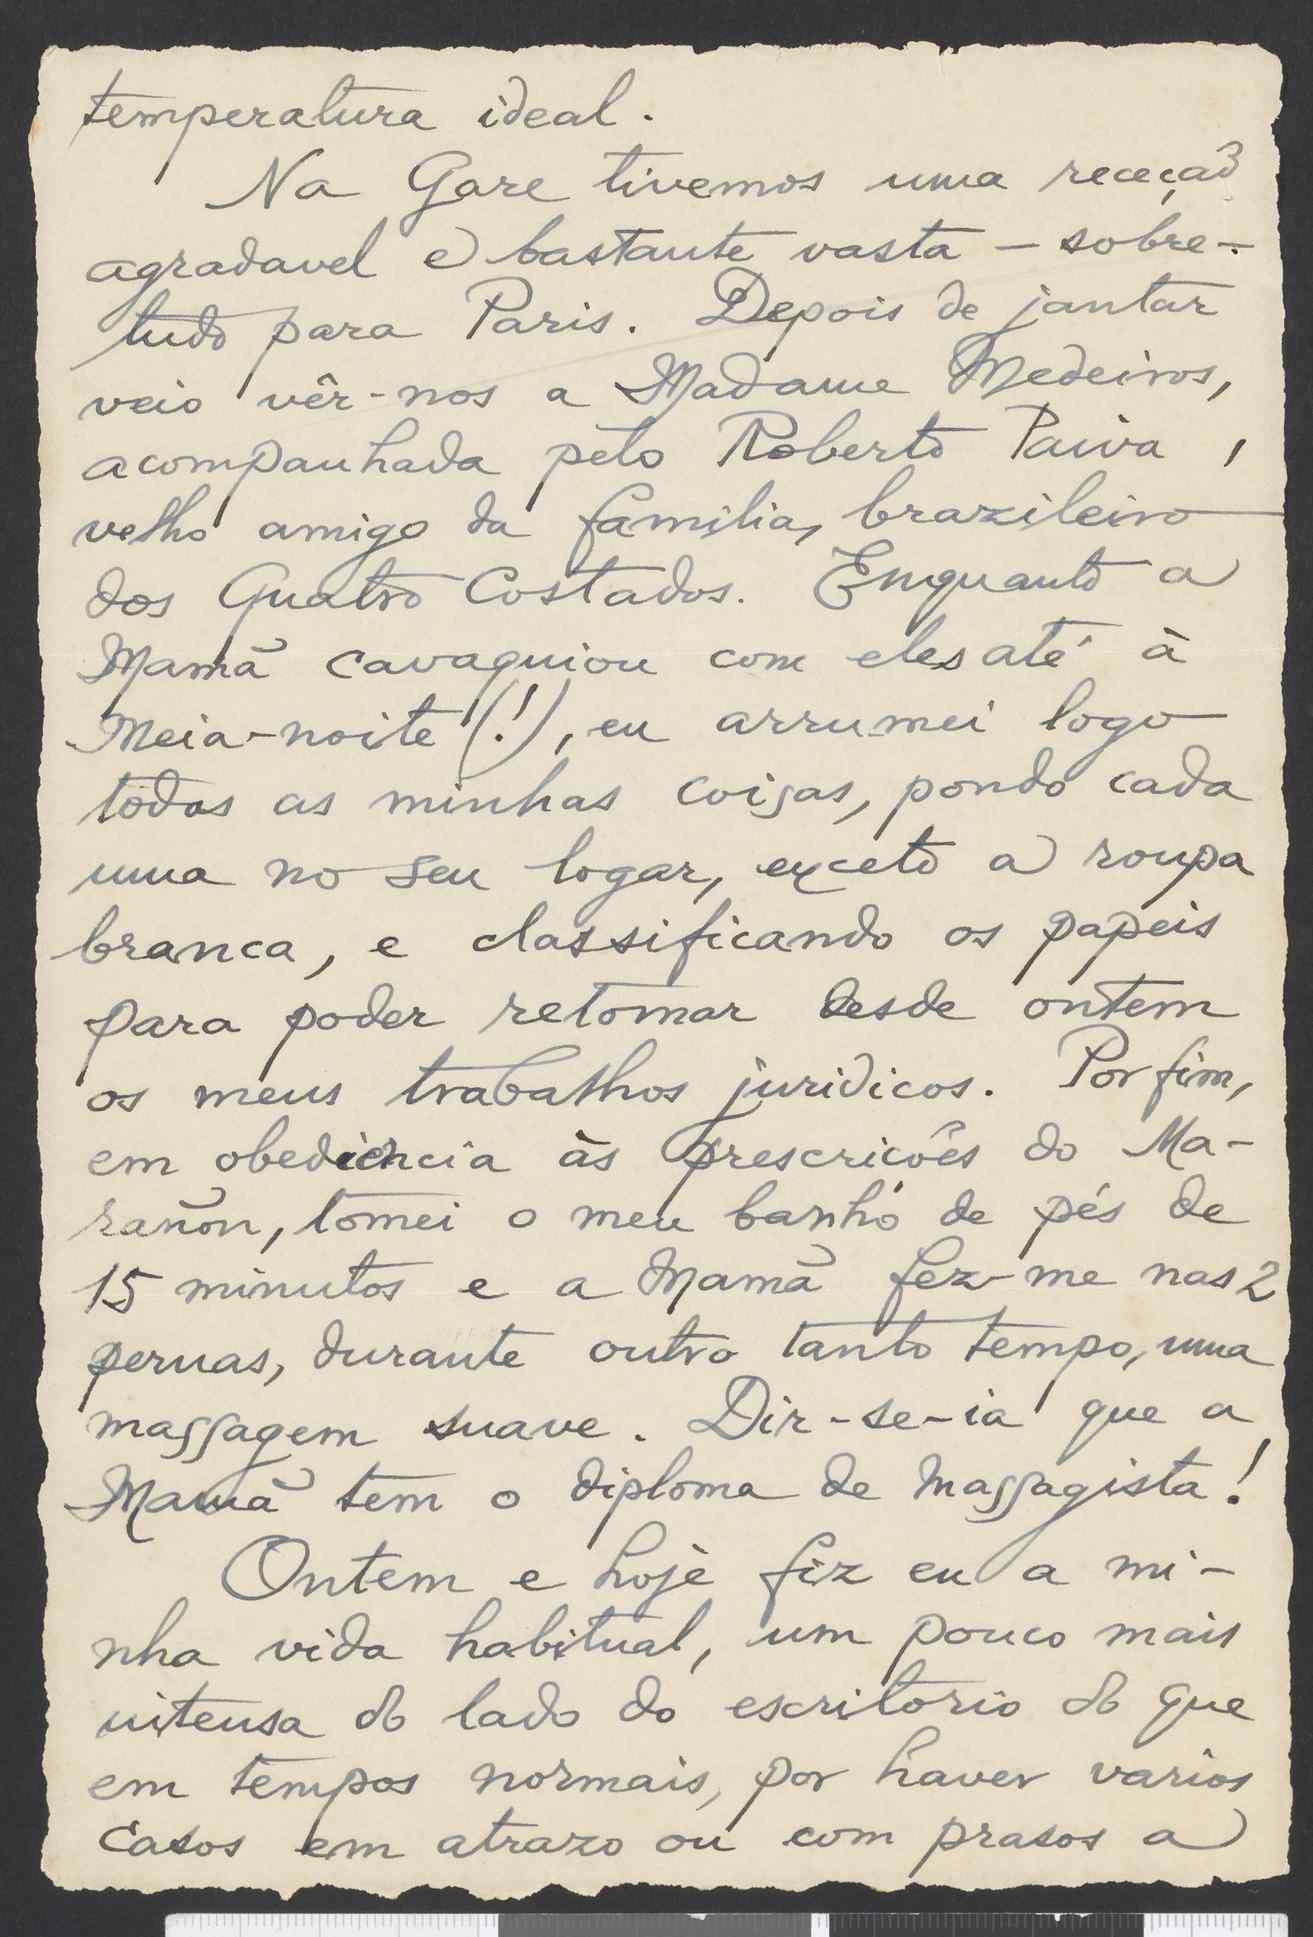 temperatura ideal.
Na Gare tivemos uma receção
agradavel e bastante vasta - sobre-
tudo para Paris. Depois de jantar
veio vêr-nos a Madame Medeiros,
acompanhada pelo Roberto Paiva,
velho amigo da familia, brazileiro
dos Quatro Costados. Enquanto a
Mamã cavaquiou com eles até à
Meia-noite (!), eu arrumei logo
todas as minhas coisas, pondo cada
uma no seu logar, exceto a roupa
branca, e classificando os papeis
para poder retomar desde ontem
os meus trabalhos juridicos. Por fim,
em obediencia às prescricões do Ma-
rañon, tomei o meu banho de pés de
15 minutos e a Mamã fez-me nas 2
pernas, durante outro tanto tempo, uma
massagem suave. Dir-se-ia que a
Mamã tem o diploma de Massagista!
Ontem e hoje fiz eu a mi-
nha vida habitual, um pouco mais
intensa do lado do escritorio do que
em tempos normais, por haver varios
casos em atrazo ou com prasos a